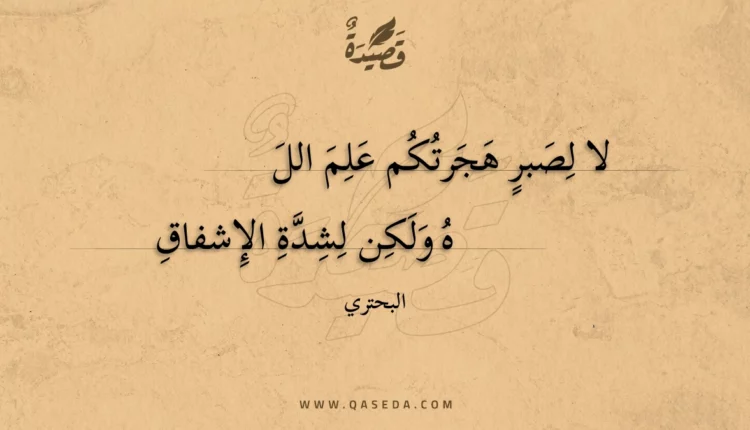 قَصِيدَةٌ
لا لِصَبرٍ هَجَرتُكُم عَلِمَ اللَ
هُ وَلَكِن لِشِدَّةِ الإِشفاقِ
البحتري
WWW.QASEDA.COM